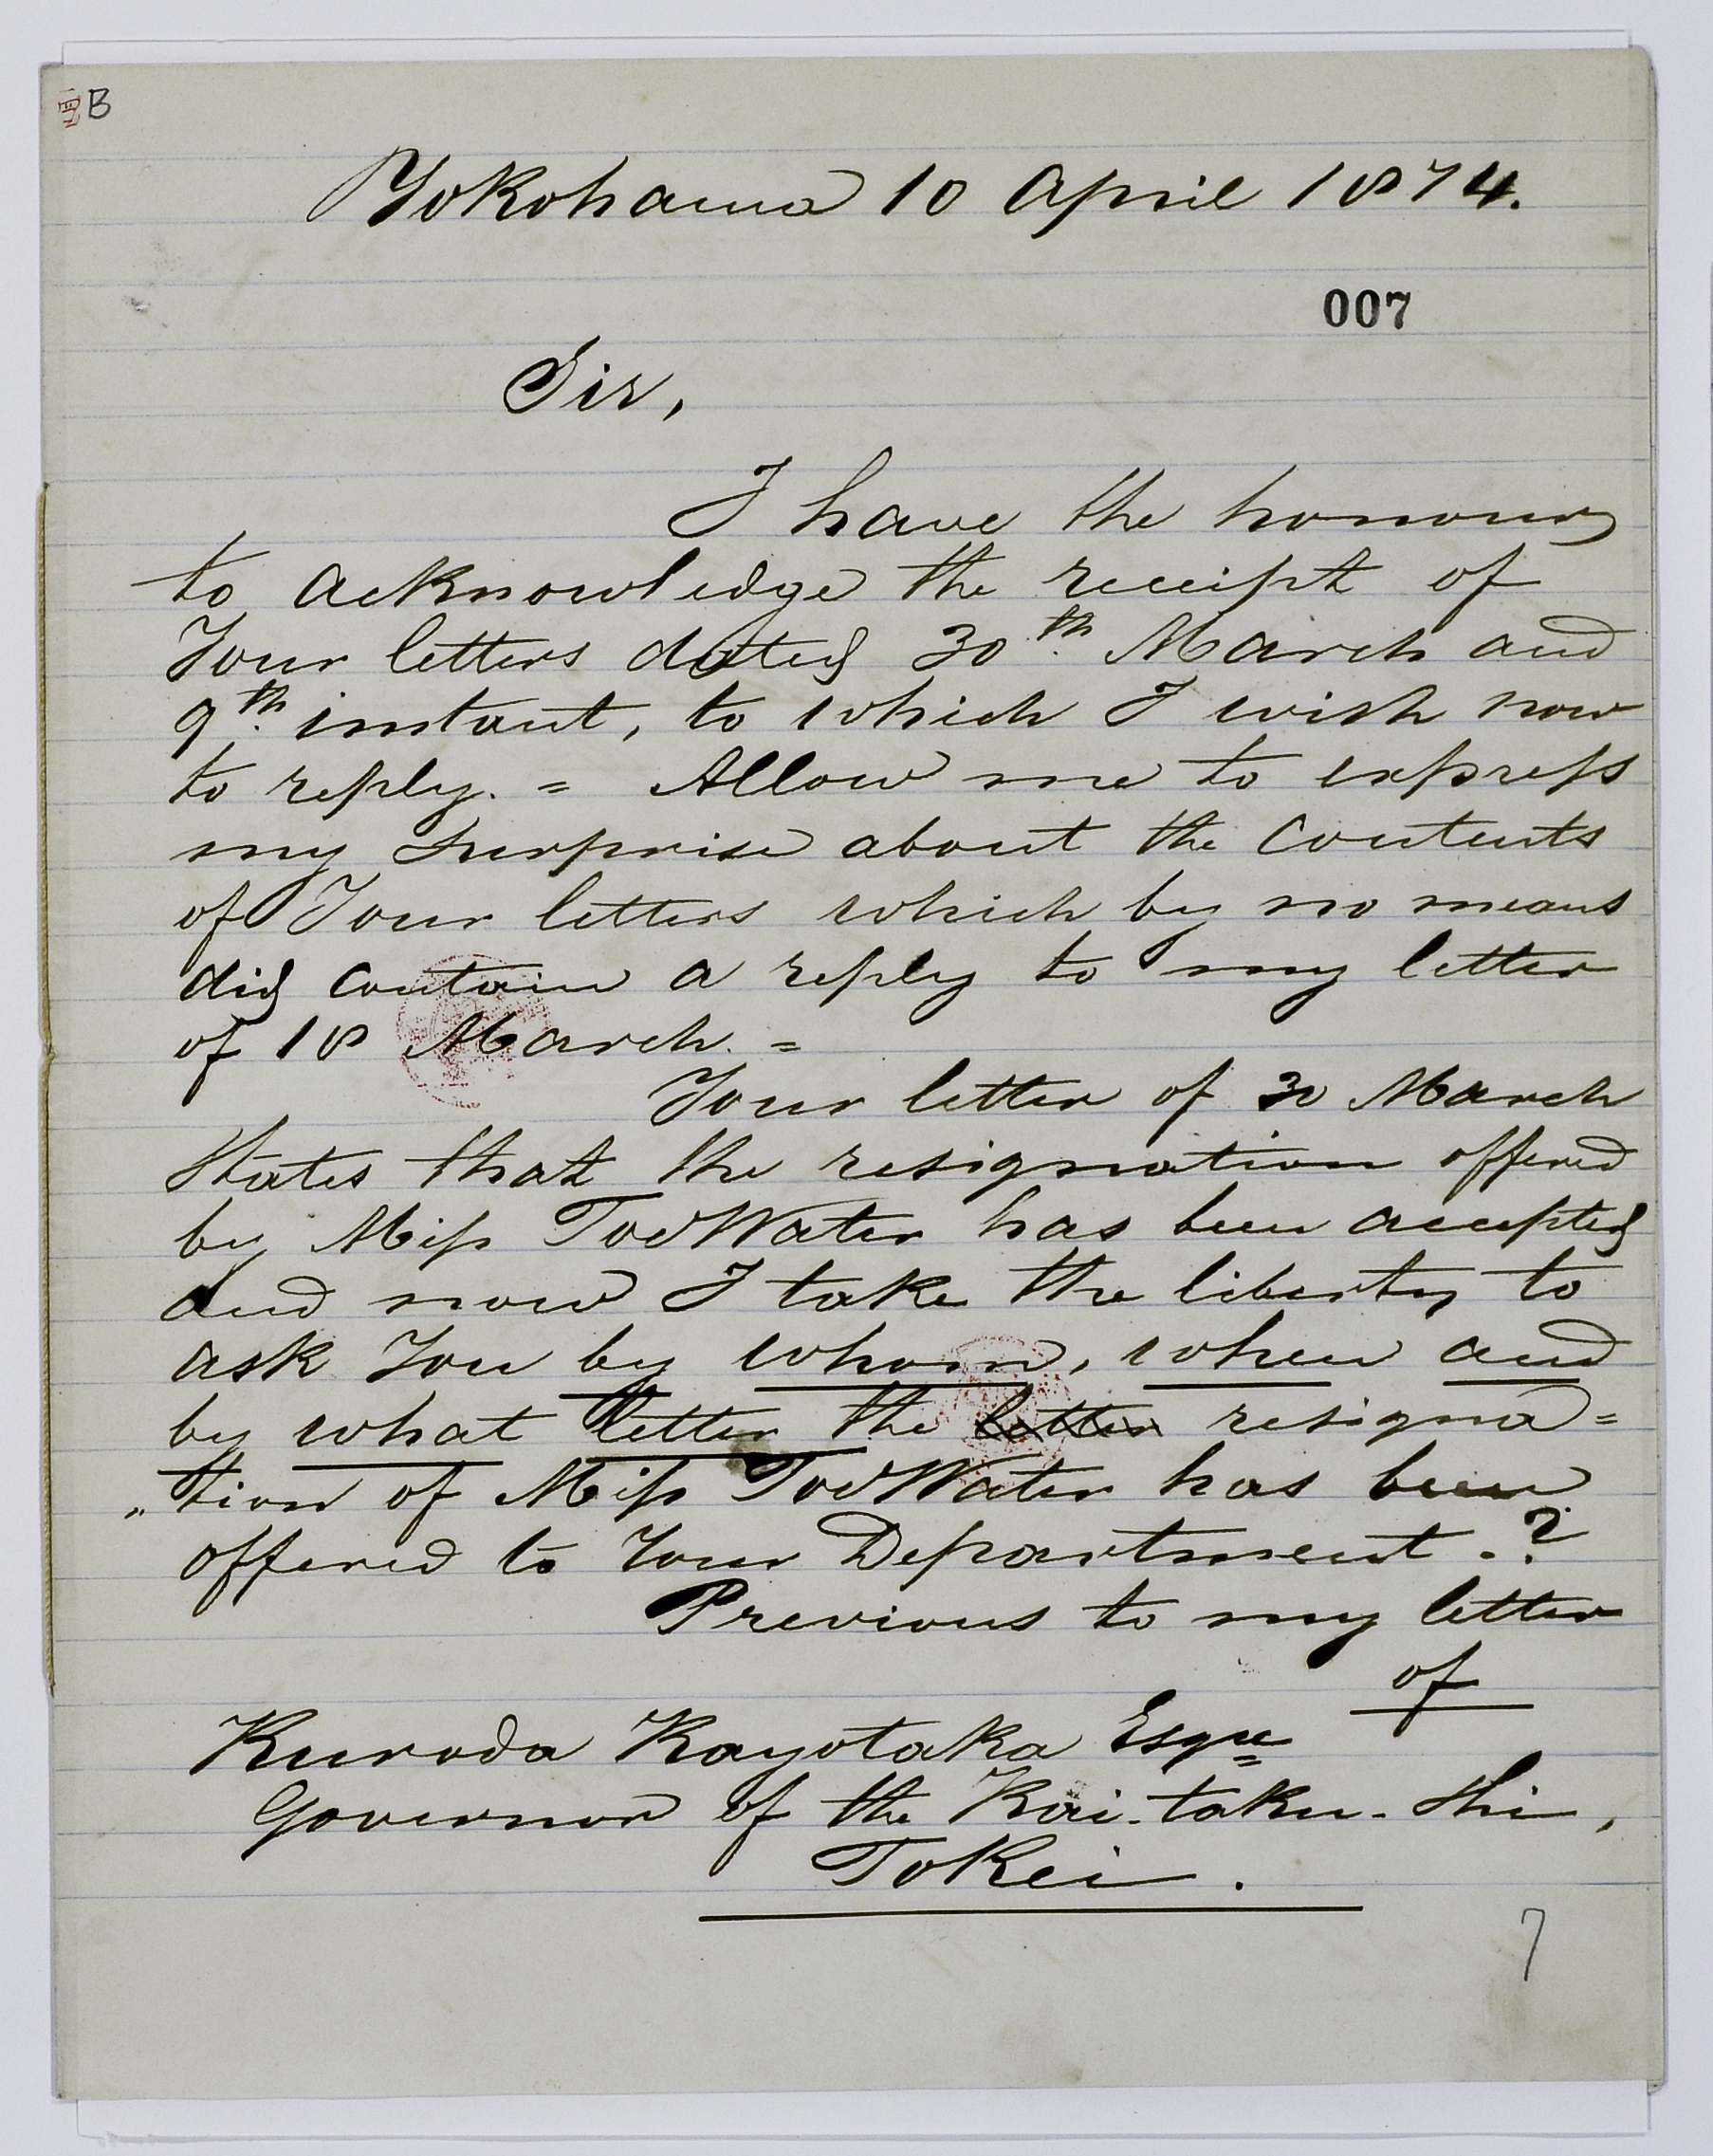 B
Yokohama 10 April 1874.
007
Sir,
I have the honour
to acknowledge the receipt of
Your letters dated 30th March and
9th instant, to which I wish now
to reply. = Allow me to express
my surprise about the contents
of Your letters which by no means
did contain a reply to my letter
of 18 March. =
Your letter of 30 March
states that the resignation offered
by Miss DeWater has been accepted
and now I take the liberty to
ask You by whom, when and
by what letter the letter resigna=
"tion of Miss DeWater has been
offered to Your Department.?
Previous to my letter
of
Kuroda Kayotaka Esqre
Governor of the Kai-taku-shi,
Tokei.
7